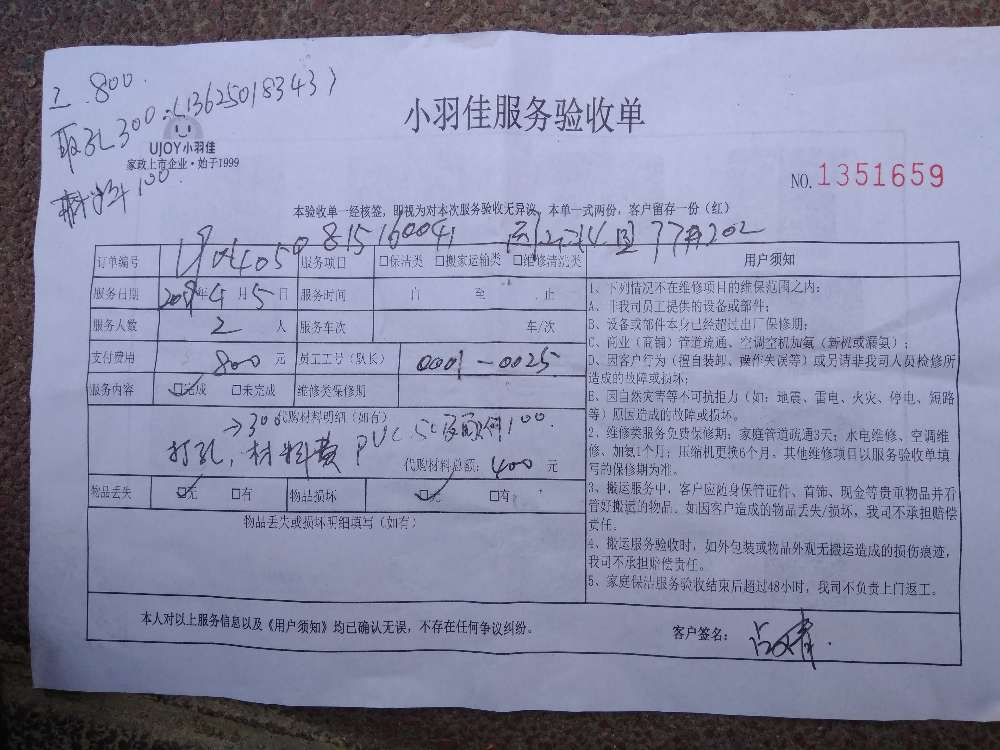 工.800.
取孔300.(13625018343)
料 100.
UJOY小羽佳
家政上市企业·始于1999
小羽佳服务验收单
NO.1351659
本验收单一经核签，即视为对本次服务验收无异议，本单一式两份，客户留存一份（红）
订单编号 1904050815160041 202
服务项目 □保洁类 □搬家运输类 □维修清洗类
服务日期 2019年4月5日 服务时间 自 至 止
服务人数 2 人 服务车次 车/次
支付费用 800 元 员工工号（队长） 0001-0025
服务内容 □完成 □未完成 维修类保修期
→300 代购材料明细（如有）
打孔，材料费 PVC 100.
代购材料总额：400 元
物品丢失 □无 □有 物品损坏 □无 □有
物品丢失或损坏明细填写（如有）
用户须知
1、下列情况不在维修项目的维保范围之内：
A、非我司员工提供的设备或部件；
B、设备或部件本身已经超过出厂保修期；
C、商业（商铺）管道疏通、空调空机加氨（新机或漏氨）；
D、因客户行为（擅自装卸、操作失误等）或另请非我司人员检修所
造成的故障或损坏；
E、因自然灾害等不可抗拒力（如：地震、雷电、火灾、停电、短路
等）原因造成的故障或损坏。
2、维修类服务免费保修期：家庭管道疏通3天；水电维修、空调维
修、加氨1个月；压缩机更换6个月，其他维修项目以服务验收单填
写的保修期为准。
3、搬运服务中，客户应随身保管证件、首饰、现金等贵重物品并看
管好搬运的物品。如因客户造成的物品丢失/损坏，我司不承担赔偿
责任。
4、搬运服务验收时，如外包装或物品外观无搬运造成的损伤痕迹，
我司不承担赔偿责任。
5、家庭保洁服务验收结束后超过48小时，我司不负责上门返工。
本人对以上服务信息以及《用户须知》均已确认无误，不存在任何争议纠纷。
客户签名：